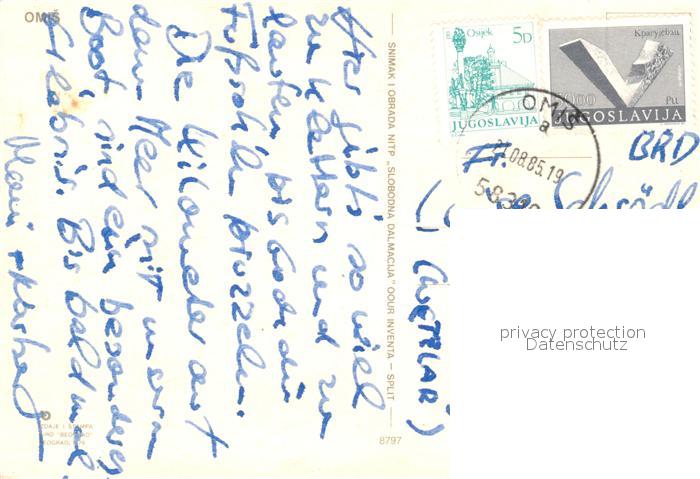 OMIŠ
Hier gibt's so viel
zu klettern und zu
laufen, bis sodaß die
Fußsohlen brutzeln.
Die Kilometer auf
dem Meer mit unserm
Boot sind ein besonderes
Erlebnis. Bis bald mal
SNIMAK I OBRADA NITP „SLOBODNA DALMACIJA" OOUR INVENTA — SPLIT
8797
Osijek
5D
JUGOSLAVIJA
Крагујевац
JUGOSLAVIJA
OMIŠ
a
08.85.19
BRD
Fr.
(WETZLAR)
privacy protection
Datenschutz